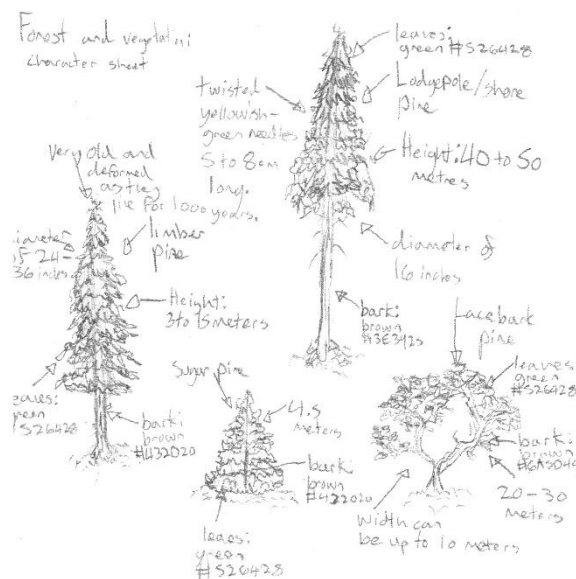 Forest and vegetation:
character sheet
leaves:
green #526428
Lodgepole/shore
pine
twisted
yellowish-
green needles
5 to 8cm
long.
Height: 40 to 50
metres
diameter of
16 inches
bark:
brown
#3E3425
very old and
deformed
as they
live for 1000 years.
diameter
of 24-
36 inches
limber
pine
Height:
3 to 15 meters
leaves:
green
526428
bark:
brown
#432020
Sugar pine
4.5
meters
bark:
brown
#422020
leaves:
green
#526428
Lacebark
pine
leaves
green
#526428
bark:
brown
20-30
meters
width can
be up to 10 meters